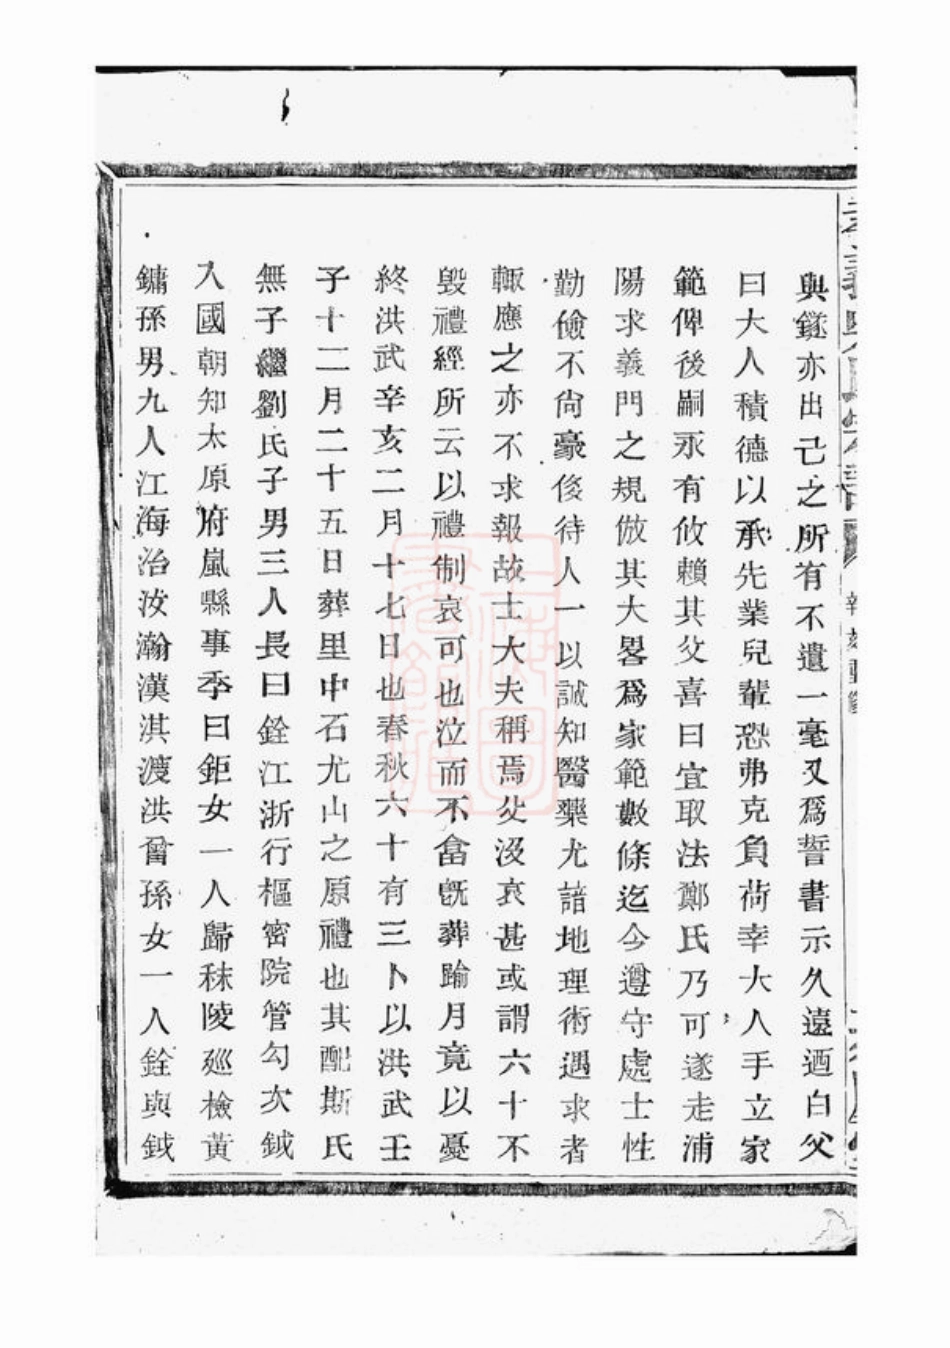 與鐩亦出己之所有不遺一毫又爲誓書示久遠迺白父
曰大人積德以承先業兒輩恐弗克負荷幸大人手立家
範俾後嗣永有攸賴其父喜曰宜取法鄭氏乃可遂走浦
陽求義門之規倣其大畧爲家範數條迄今遵守處士性
勤儉不尙豪侈待人一以誠知醫藥尤諳地理術遇求者
輙應之亦不求報故士大夫稱焉父没哀甚或謂六十不
毁禮經所云以禮制哀可也泣而不畣旣葬踰月竟以憂
終洪武辛亥二月十七日也春秋六十有三卜以洪武壬
子十二月二十五日葬里中石尤山之原禮也其配斯氏
無子繼劉氏子男三人長曰銓江浙行樞密院管勾次鉞
入國朝知太原府嵐縣事季曰鉅女一人歸秣陵廵檢黃
鏞孫男九人江海治汝瀚漢淇渡洪曾孫女一人銓與鉞